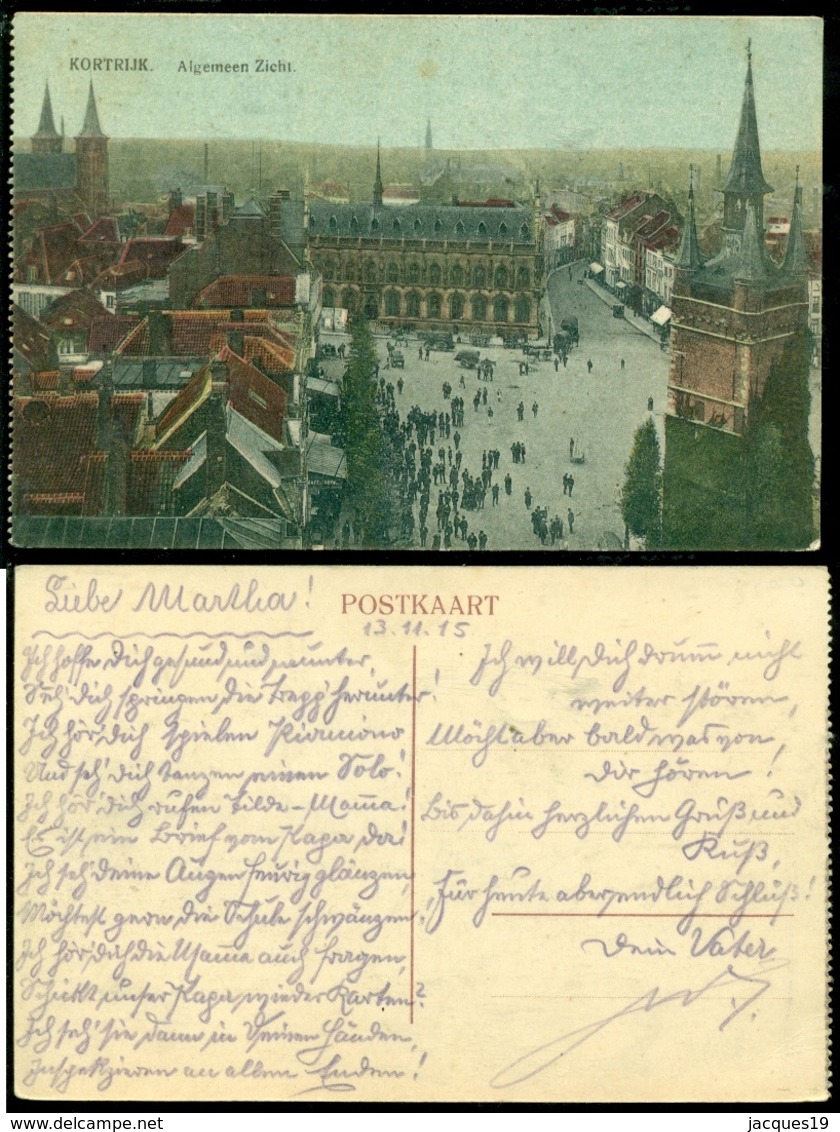 KORTRIJK. Algemeen Zicht.
Liebe Martha!
POSTKAART
13.11.15
Ich hoffe Dich gesund und munter,
Seh' Dich springen die Trepp' herunter!
Ich hör' Dich spielen Piamino
Und seh' Dich tanzen einen Solo!
Ich hör' Dich rufen Tilde-Mama!
Es ist ein Brief vom Papa da!
Ich seh' Deine Augen feurig glänzen,
Möchtest gern die Schule schwänzen!
Ich hör' Dich die Mama auch fragen,
Schickt unser Papa wieder Karten?
Ich seh' sie dann in Deinen Händen,
Inspekzieren an allen Enden!
Ich will Dich drum nicht
weiter stören,
Möcht aber bald was von
Dir hören!
Bis dahin herzlichen Gruß und
Kuß,
Für heute aber endlich Schluß!
Dein Vater
jacques19